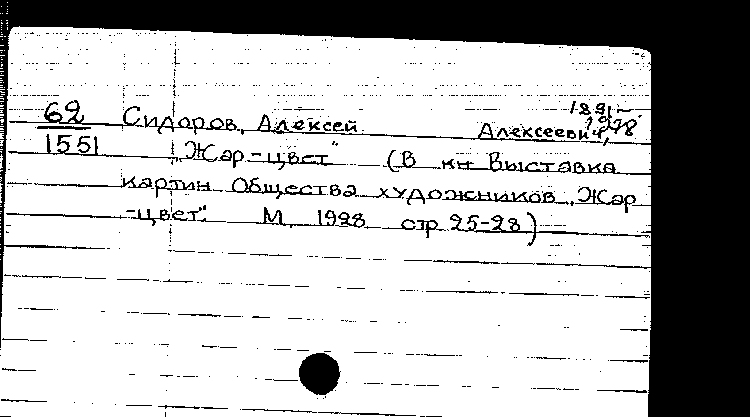 62 Сидоров, Алексей Алексеевич, 1891-1978.
1551 "Жар-цвет" (В кн Выставка
картин Общества художников "Жар
-цвет". М, 1928 стр 25-28)